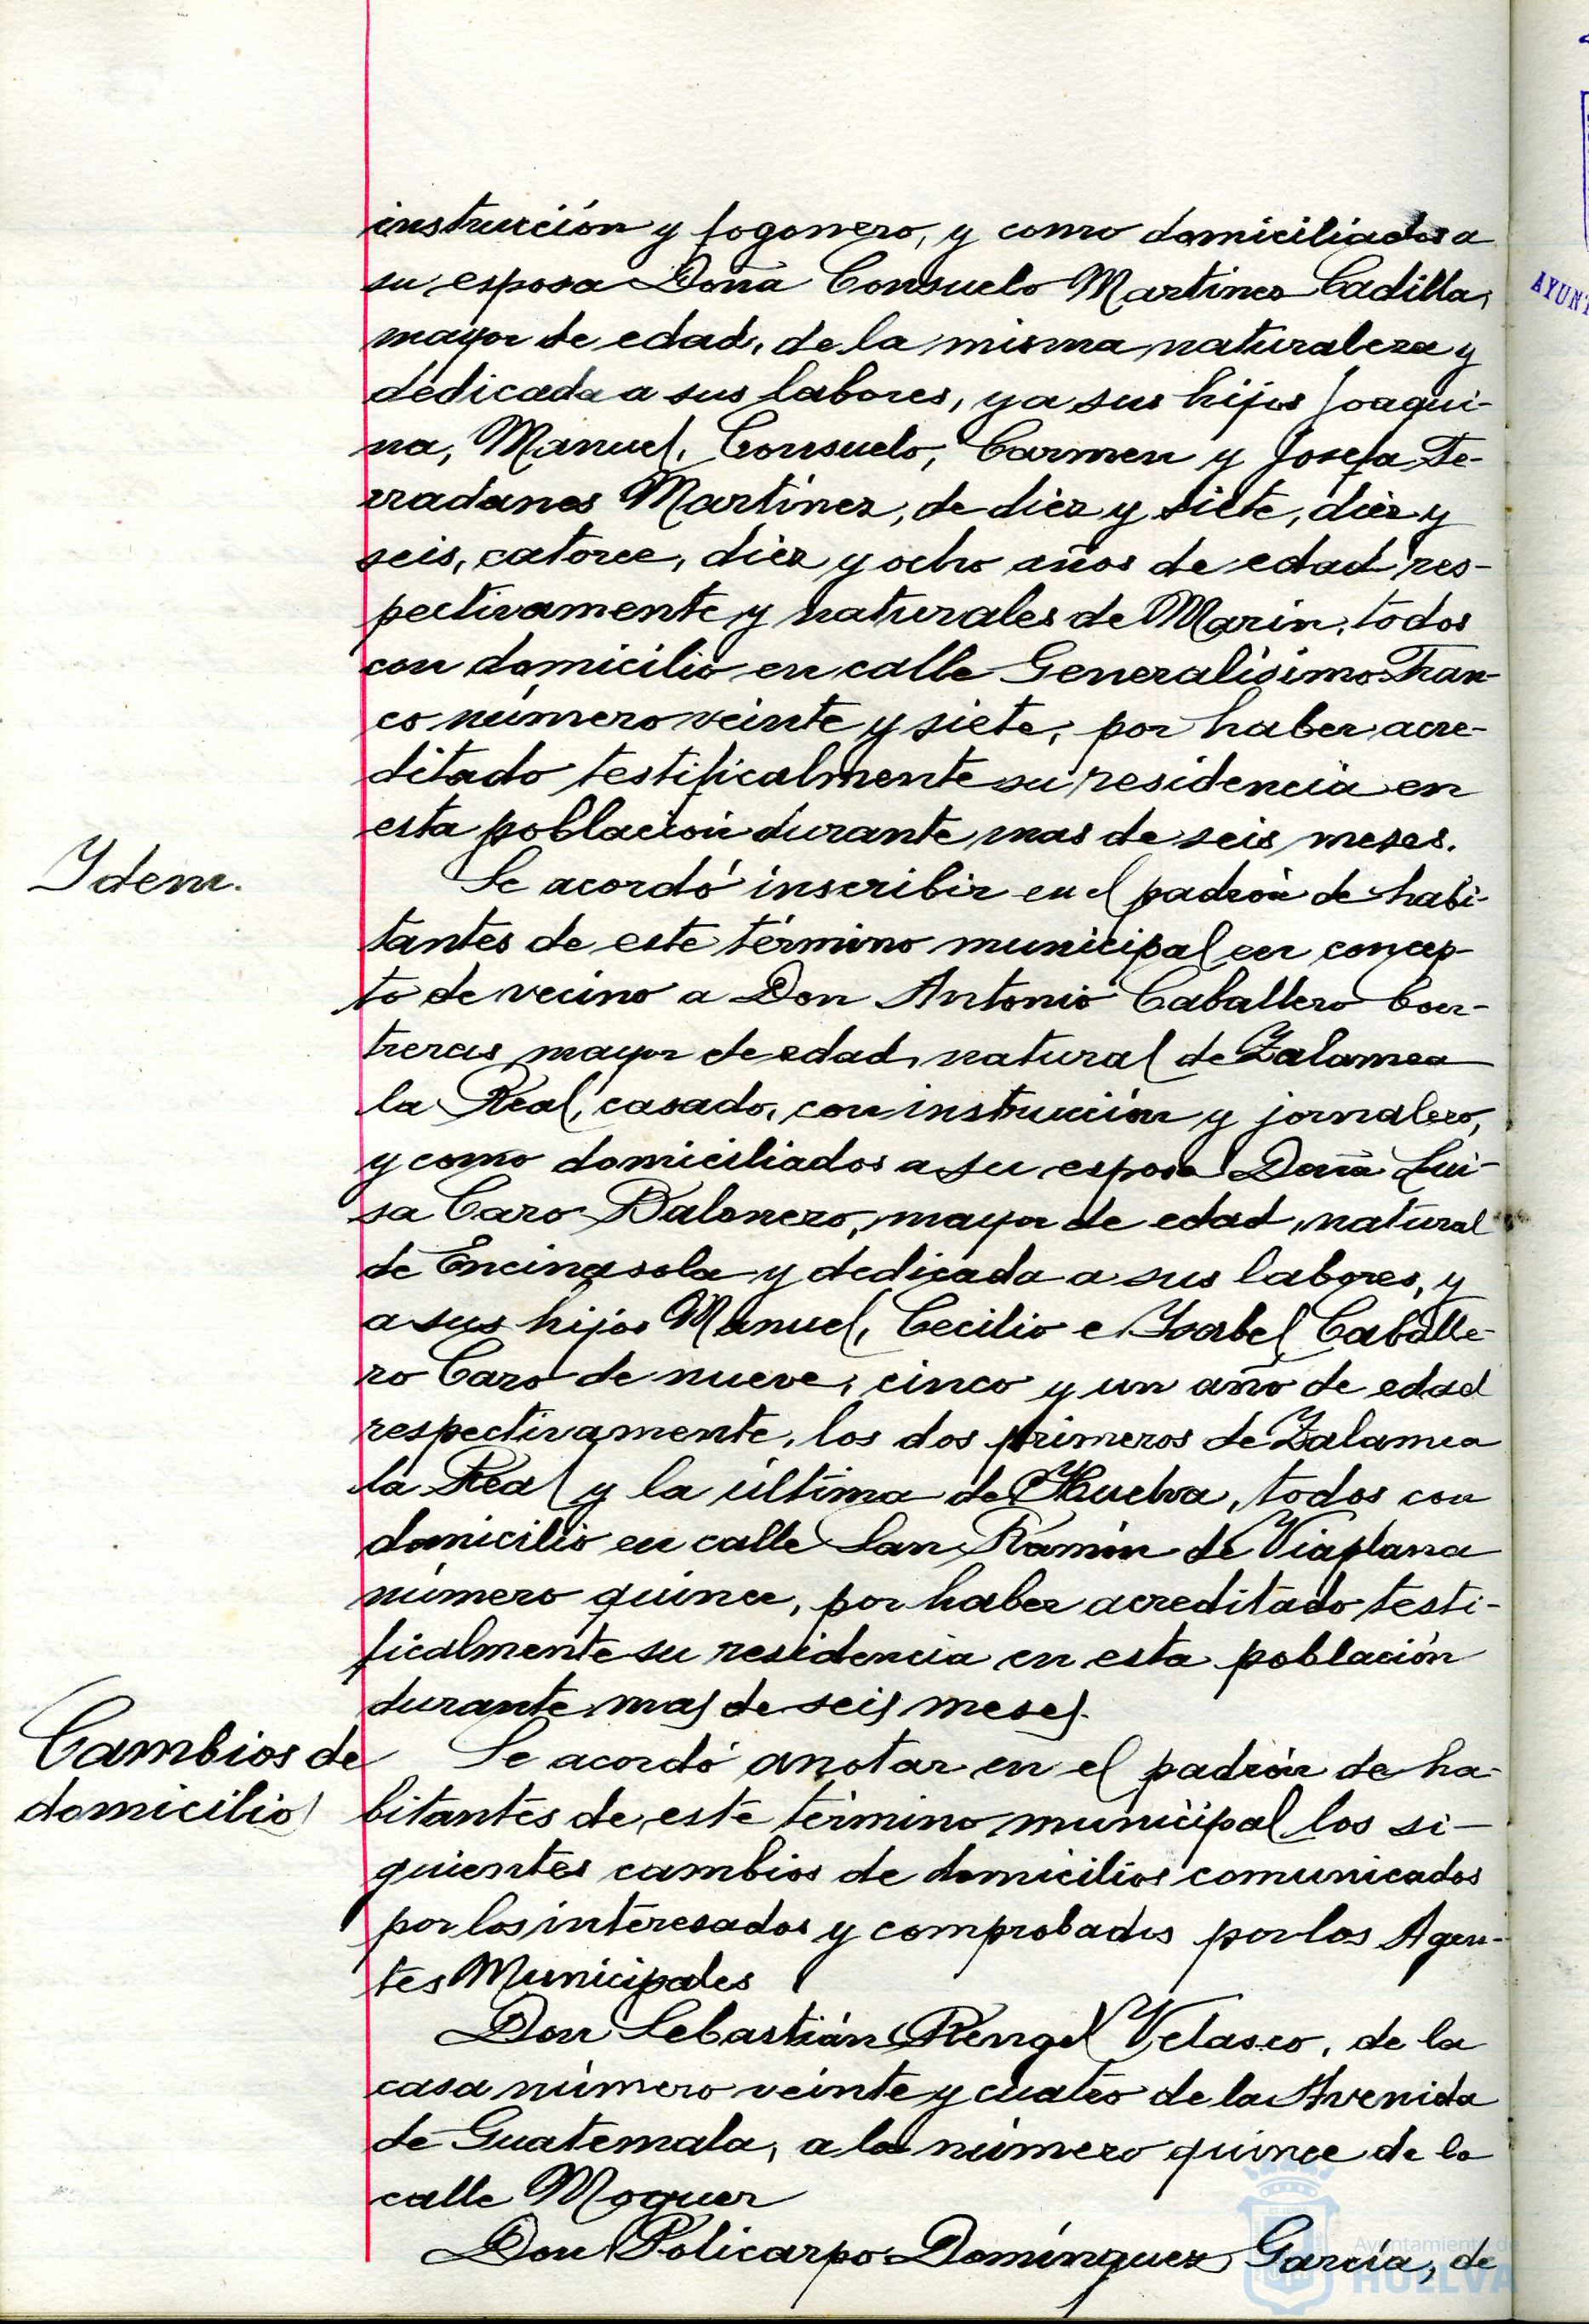 instrucción y fogonero, y como domiciliados a
su esposa Doña Consuelo Martinez Cadilla,
mayor de edad, de la misma naturaleza y
dedicada a sus labores, y a sus hijos Joaqui-
na, Manuel, Consuelo, Carmen y Josefa Te-
rradanes Martinez, de diez y siete, diez y
seis, catorce, diez y ocho años de edad res-
pectivamente y naturales de Marin, todos
con domicilio en calle Generalisimo Fran-
co número veinte y siete, por haber acre-
ditado testificalmente su residencia en
esta población durante mas de seis meses.
Ydem.
Se acordó inscribir en el padrón de habi-
tantes de este término municipal en concep-
to de vecino a Don Antonio Caballero Con-
treras mayor de edad, natural de Zalamea
la Real, casado, con instrucción y jornalero,
y como domiciliados a su esposa Doña Lui-
sa Caro Balonero, mayor de edad, natural
de Encinasola y dedicada a sus labores, y
a sus hijos Manuel, Cecilio e Ysabel Caballe-
ro Caro de nueve, cinco y un año de edad
respectivamente, los dos primeros de Zalamea
la Real y la última de Huelva, todos con
domicilio en calle San Ramón de Viaplana
número quince, por haber acreditado testi-
ficalmente su residencia en esta población
durante mas de seis meses.
Cambios de
domicilio
Se acordó anotar en el padrón de ha-
bitantes de este término municipal los si-
guientes cambios de domicilios comunicados
por los interesados y comprobados por los Agen-
tes Municipales
Don Sebastián Rengel Velasco, de la
casa número veinte y cuatro de la Avenida
de Guatemala, a la número quince de la
calle Moguer
Don Policarpo Domínguez García, de
AYUNT
Ayuntamiento de
HUELVA